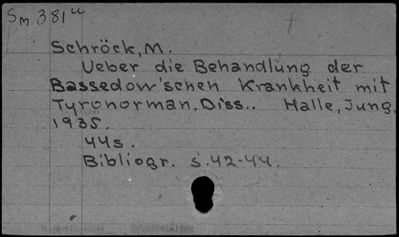 Sm 381u
Schröck, M.
Ueber die Behandlung der
Bassedow'schen Krankheit mit
Tyronorman, Diss.. Halle, Jung,
1935.
44s.
Bibliogr. s.42-44.